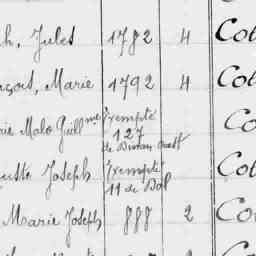 h, Jules 1782 4 Col
ançois, Marie 1792 4 Col
rie Malo Guillme Exempté Co
127
de Dinan Ouest
uste Joseph Exempté Col
11 de Dol
Marie Joseph 888 2 Co